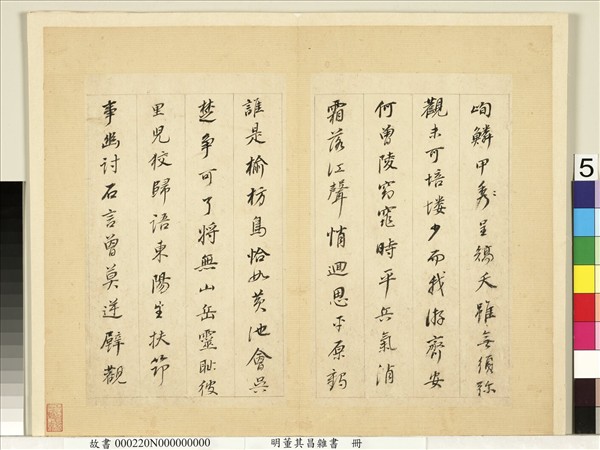 峋鱗甲秀呈矯夭雖無須弥
觀未可培塿少而我游齊安
何曾陵窈窕時平兵氣消
霜落江聲悄迴思平原
誰是榆枋鳥恰如黃池會吳
楚爭可了將無山岳靈耻彼
里兒狡歸語東陽生扶筇
事幽討石言曾莫逆壁觀
5
故書 000220N000000000 明董其昌雜書 冊